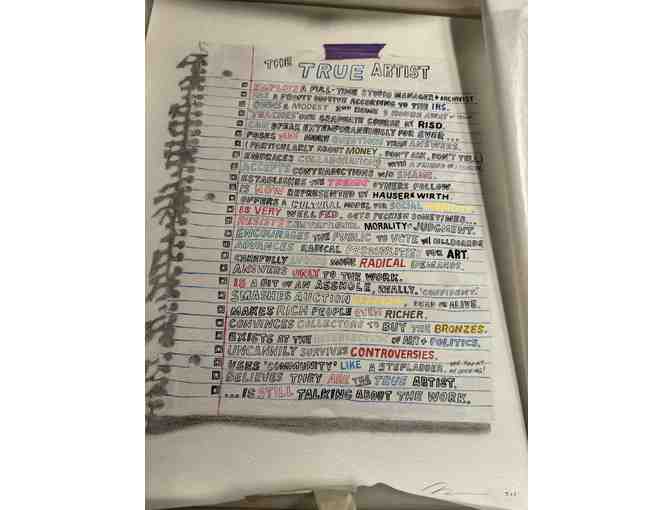 THE TRUE ARTIST
EMPLOYS A FULL-TIME STUDIO MANAGER + ARCHIVIST
HAS A PROFIT MOTIVE ACCORDING TO THE IRS.
OWNS A MODEST 2ND HOME 2 HOURS AWAY
TEACHES ONE GRADUATE COURSE AT RISD.
CAN SPEAK EXTEMPORANEOUSLY FOR EVER
POSES MORE QUESTIONS THAN ANSWERS.
(PARTICULARLY ABOUT MONEY. DON'T ASK, DON'T TELL)
EMBRACES COLLABORATION
CONTRADICTIONS W/O SHAME.
ESTABLISHES THE TRENDS OTHERS FOLLOW.
IS NOW REPRESENTED BY HAUSER & WIRTH.
OFFERS A CULTURAL MODEL FOR SOCIAL
IS VERY WELL FED. GETS PECKISH SOMETIMES...
RESISTS CONVENTIONAL MORALITY + JUDGMENT.
ENCOURAGES THE PUBLIC TO VOTE W/ BILLBOARDS
ADVANCES RADICAL POSSIBILITIES FOR ART.
CAREFULLY MORE RADICAL DEMANDS.
ANSWERS ONLY TO THE WORK.
IS A BIT OF AN ASSHOLE, REALLY. "CONFIDENT."
SMASHES AUCTION DEAD OR ALIVE.
MAKES RICH PEOPLE EVEN RICHER.
CONVINCES COLLECTORS TO BUY THE BRONZES.
EXISTS AT THE OF ART + POLITICS.
UNCANNILY SURVIVES CONTROVERSIES.
USES "COMMUNITY" LIKE A STEPLADDER.
BELIEVES THEY ARE THE TRUE ARTIST.
...IS STILL TALKING ABOUT THE WORK.